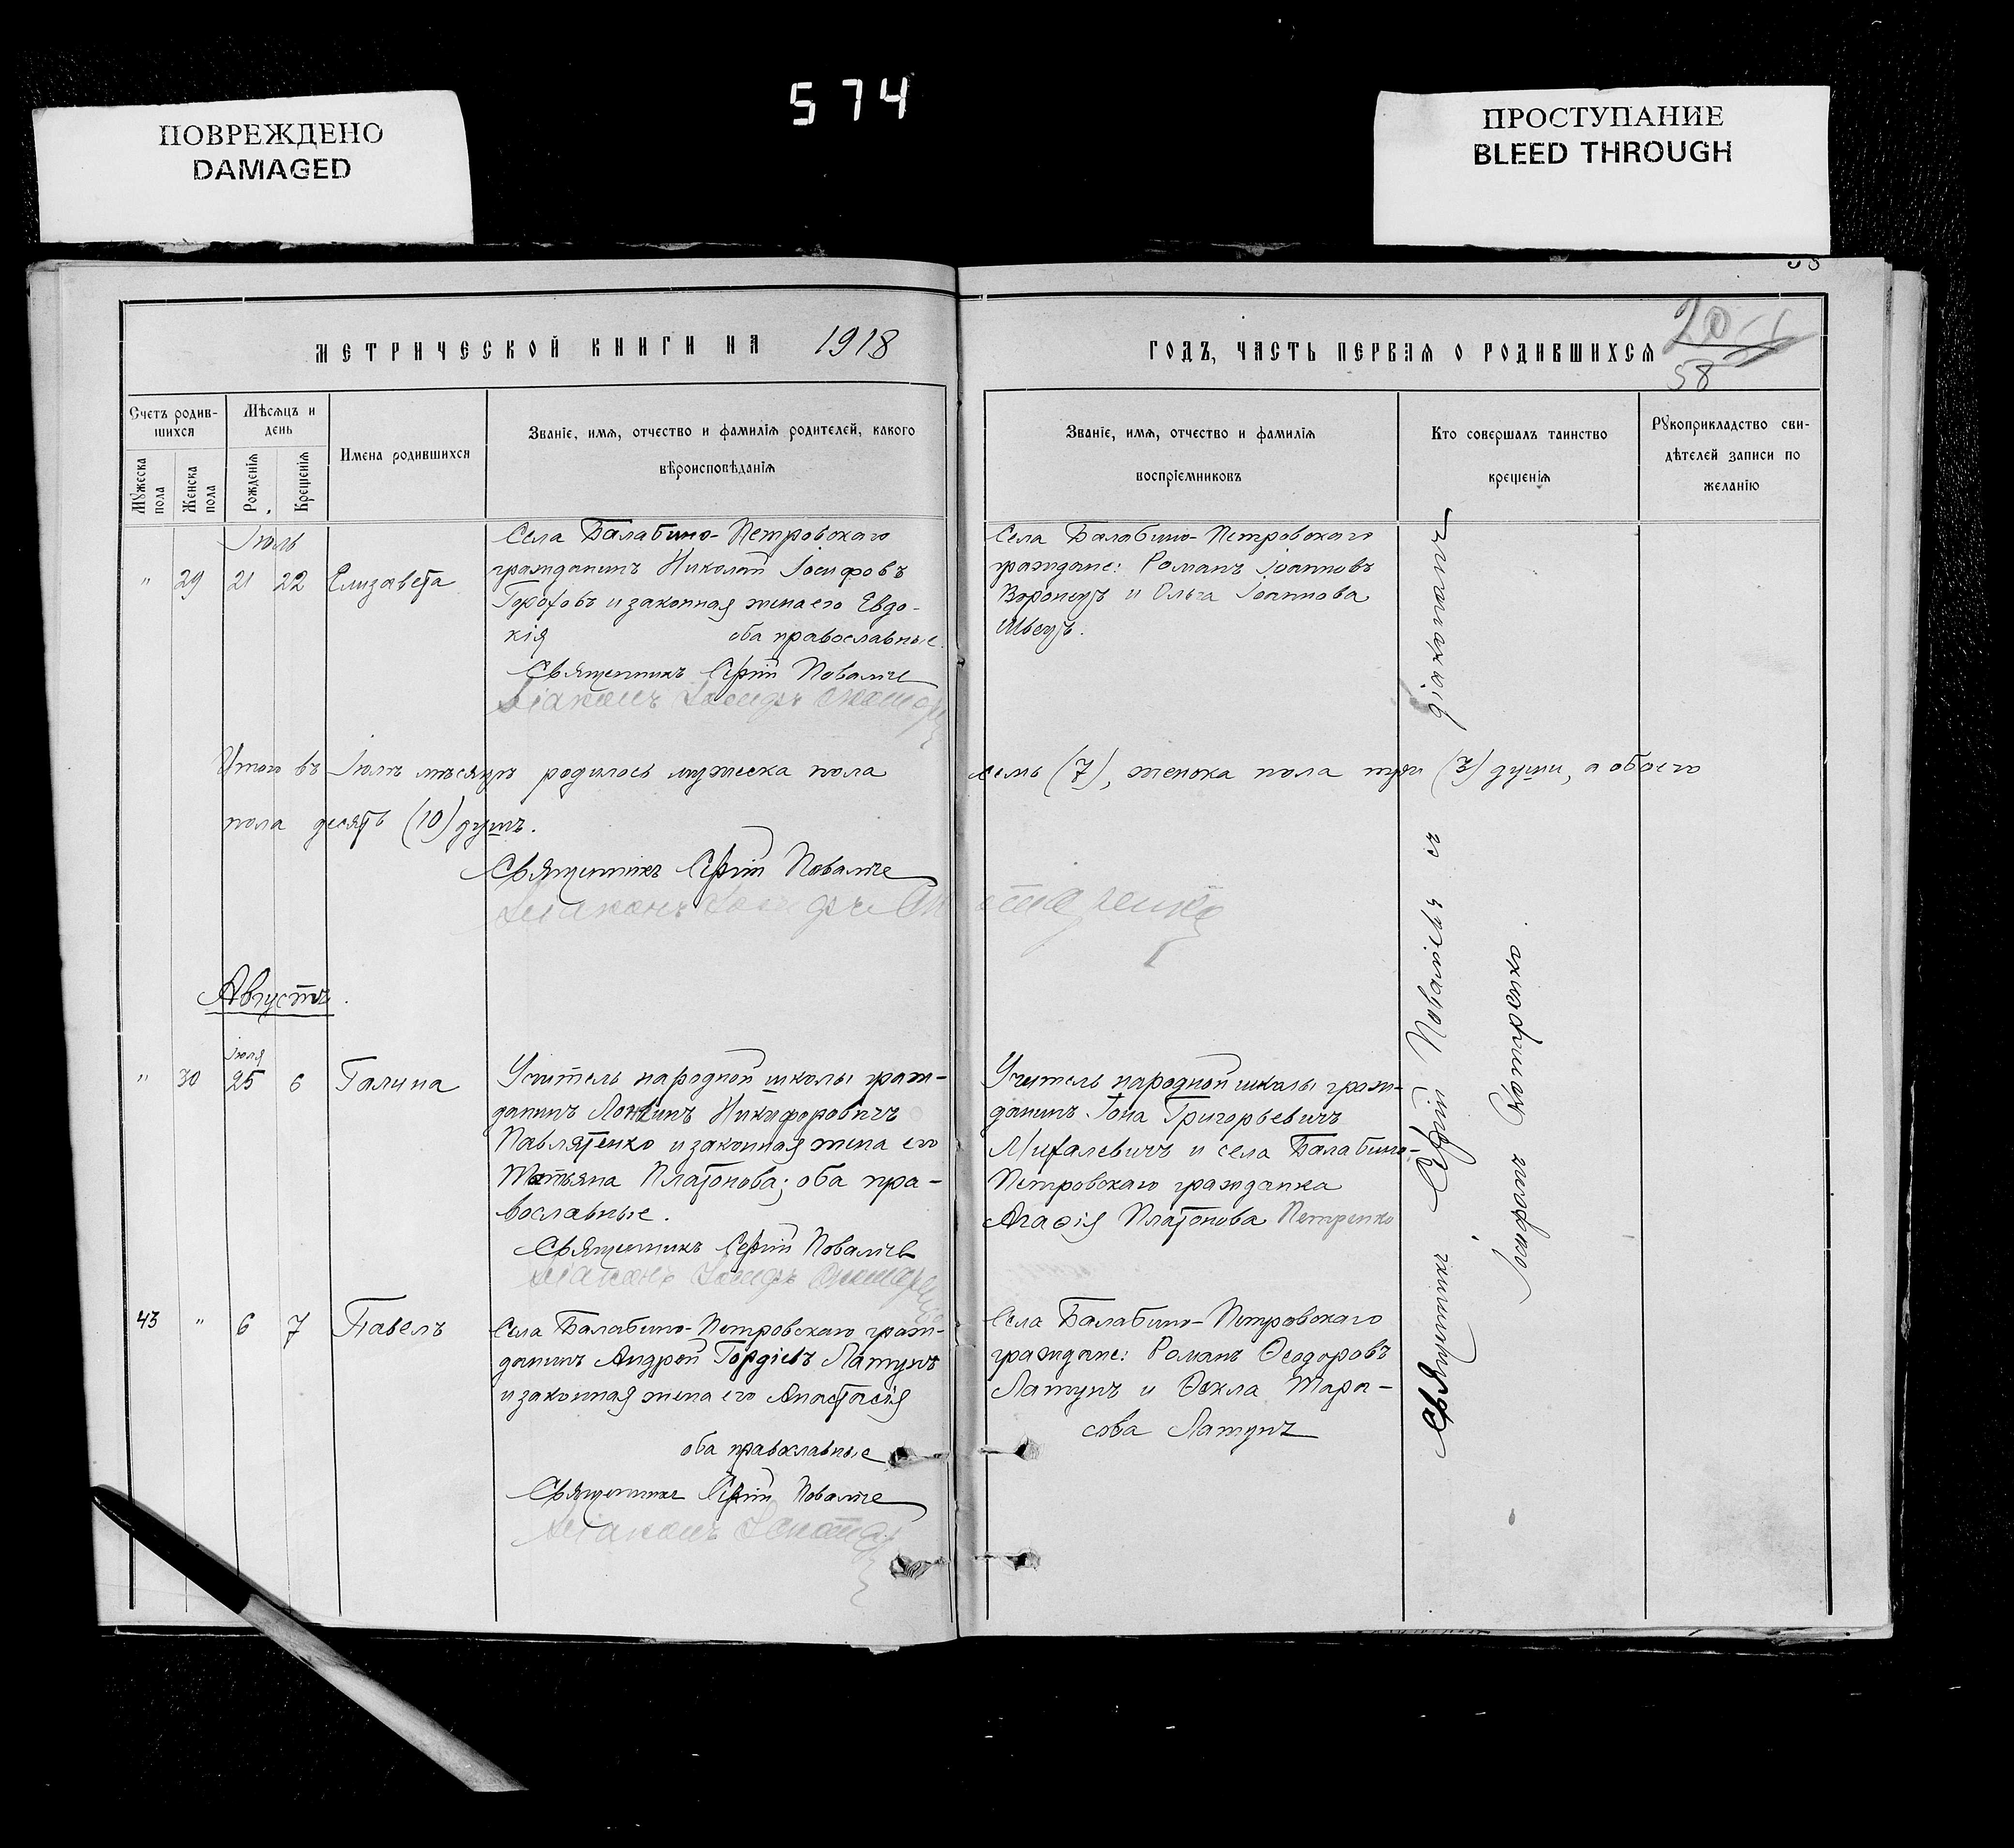 574
ПОВРЕЖДЕНО
DAMAGED
ПРОСТУПАНИЕ
BLEED THROUGH
МЕТРИЧЕСКОЙ КНИГИ НА 1918
ГОДЪ, ЧАСТЬ ПЕРВАЯ О РОДИВШИХСЯ
58
Счетъ родив-
шихся
Мѣсяцъ и
день
Имена родившихся
Званіе, имя, отчество и фамилія родителей, какого
вѣроисповѣданія
Мужеска
пола
Женска
пола
Рожденія
Крещенія
Званіе, имя, отчество и фамилія
воспріемниковъ
Кто совершалъ таинство
крещенія
Рукоприкладство сви-
дѣтелей записи по
желанію
Іюль
" 29 21 22 Елизавета
Села Балабино-Петровскаго
гражданинъ Николай Іосифовъ
Гороховъ и законная жена его Евдо-
кія оба православные.
Священникъ Сергій
Діаконъ Іосифъ
Села Балабино-Петровскаго
граждане: Романъ Іоанновъ
Воронецъ и Ольга Іоаннова
Швецъ.
Итого въ Іюлѣ мѣсяцѣ родилось мужеска пола семь (7), женска пола три (3) души, а обоего
пола десять (10) душъ.
Священникъ Сергій
Діаконъ Іосифъ
Августъ.
Іюля
" 30 25 6 Галина
Учитель народной школы граж-
данинъ Логгинъ Никифоровичъ
Павлятенко и законная жена его
Татьяна Платонова; оба пра-
вославные.
Священникъ Сергій
Діаконъ Іосифъ
Учитель народной школы граж-
данинъ Іона Григорьевичъ
Михалевичъ и села Балабино-
Петровскаго гражданка
Агафія Платонова Петренко
43 " 6 7 Павелъ
Села Балабино-Петровскаго граж-
данинъ Андрей Гордіевъ Латунъ
и законная жена его Анастасія
оба православные
Священникъ Сергій
Діаконъ
Села Балабино-Петровскаго
граждане: Романъ Ѳеодоровъ
Латунъ и Ѳекла Тара-
сова Латунъ
Священникъ Сергій съ діакономъ
Іосифомъ